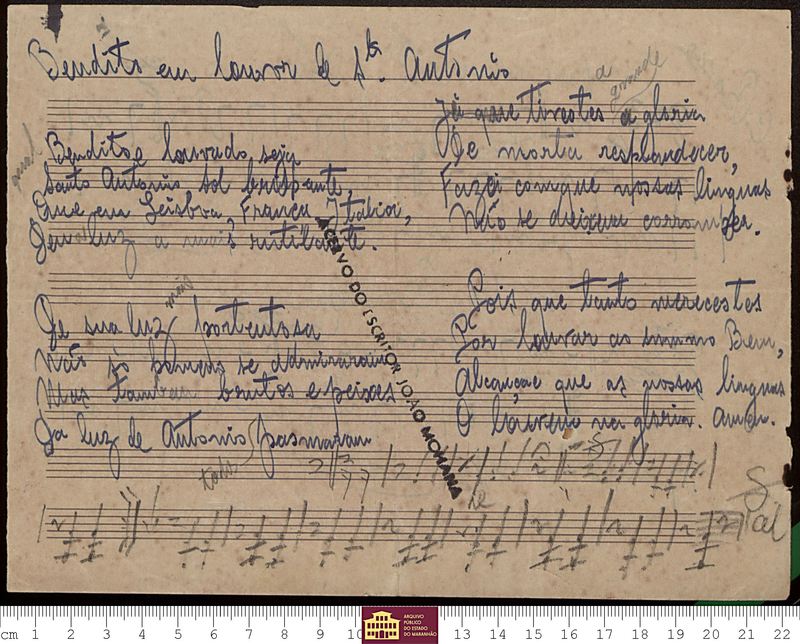 Bendito em louvor de Sto. Antonio
Bendito e louvado seja
Santo Antonio, sol brilhante,
Que em Leisboa, França Itatia,
Deu luz a mais rutilante.
De sua luz mais portentosa
Não só homens se admiraram
Mas tambem brutos e peixes
Da luz de Antonio pasmaram
todos
a grande
Já que tivestes a gloria
De morta resplandecer,
Fazei com que nossas linguas
Não se deixem corromper.
Pois que tanto merecestes
Por louvar ao summo Bem,
Alcançae que as nossas linguas
O louvem na gloria. Amen.
ACERVO DO ESCRITOR JOÃO MOHANA
al
cm 1 2 3 4 5 6 7 8 9 10 13 14 15 16 17 18 19 20 21 22
ARQUIVO
PÚBLICO
DO ESTADO
DO MARANHÃO